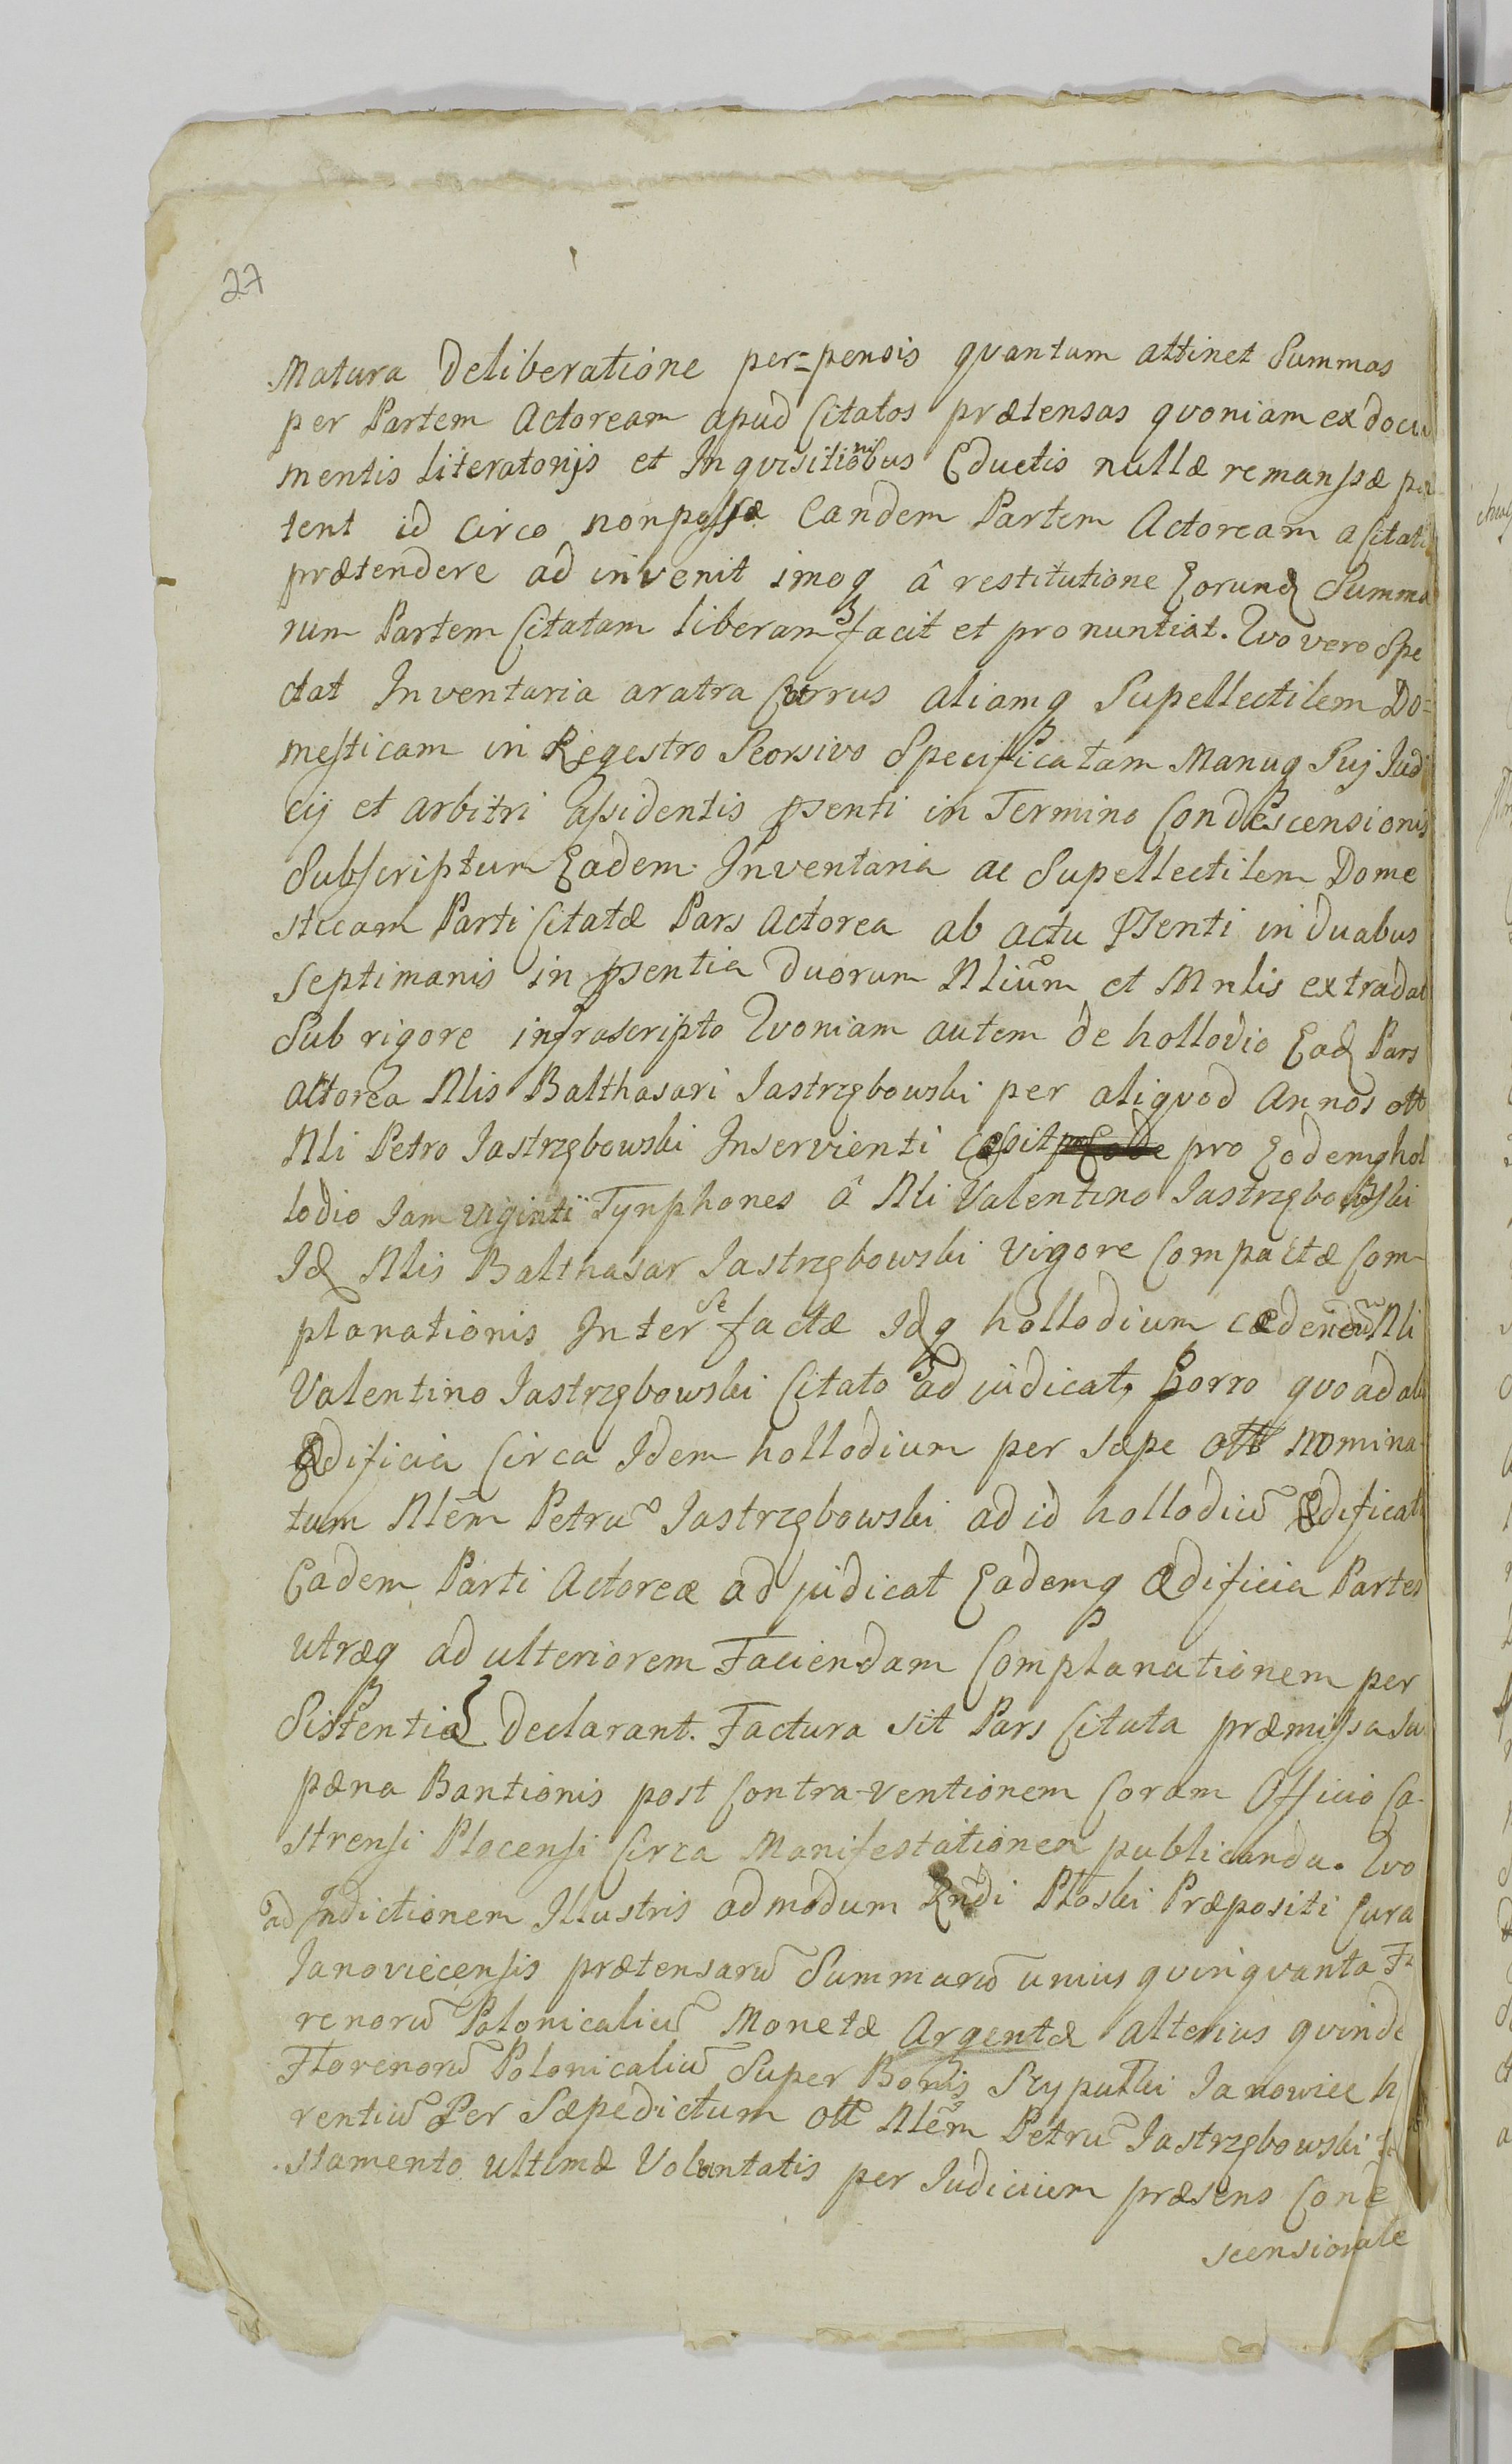 27
Matura Deliberatione per=pensis quantum attinet Summas
per Partem Actoream apud Citatos prætensas quoniam ex docu
mentis literatorijs et Inquisitionibus Eductis nullæ remanssæ pa
tent id circo non possæ Eandem Partem Actoream a Citati
prætendere ad invenit imoq â restitutione Eorund Summa
rum Partem Citatam liberam facit et pro nuntiat. Quo vero Spe
ctat Inventaria aratra Currus aliamq Supellectilem Do=
mesticam in Regestro Seorsivo Specificatam Manuq Suj Judi
cij et arbitri assidentis psenti in Termino Condescensionis
Subscriptum Eadem Inventaria ac Supellectilem Dome
sticam Parti Citatæ Pars Actorea ab actu Psenti in duabus
septimanis in psentia duorum Nlium et Mnlis extradat
Sub rigore infrascripto Quoniam autem de hollodio Ead Pars
actorea Nlis Balthasari Jastrzębowski per aliquod Annos ott
Nli Petro Jastrzębowski Inservienti cessit pro Eodemq hol
lodio Jam viginti Tynphones â Nli Valentino Jastrzębowski
Id Nlis Balthasar Jastrzębowski vigore Compactæ Com-
planationis Inter se factæ Idq hollodium cædendu Nli
Valentino Jastrzębowski Citato ad judicat, Porro quo ad ali
Ædificia Circa Idem hollodium per sæpe ott nomina
tum Nlem Petru Jastrzębowski ad id hollodiu Ædificat
Eadem Parti Actoreæ ad judicat Eademq Ædificia Partes
utræq ad ulteriorem Faciendam Complanationem per
Sistentia declarant. Factura sit Pars Citata præmissa su
pæna Bantionis post Contra-ventionem Coram Officio Ca-
strensi Plocensi Circa Manifestationem publicanda. Quo
ad Indictionem Illustris ad modum Rndi Płoski Præpositi Cura
Janoviecensis prætensaru Summaru unius quinquanta Fl
renoru Polonicaliu Monetæ Argentæ alterius quinde
Florenoru Polonicaliu Super Bonis Szypułki Janowiec h
rentiu Per Sæpedictum ott Nlem Petru Jastrzębowski te
stamento ultimæ Voluntatis per Judicium præsens Cond
scensionale